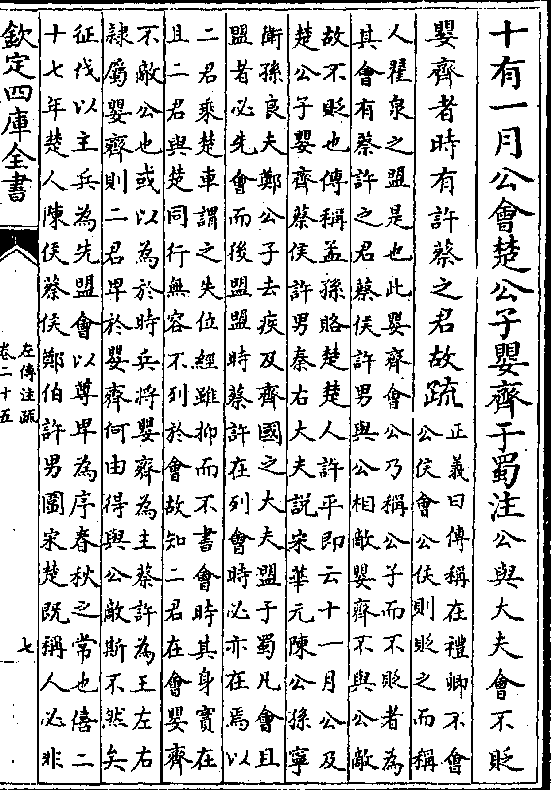 十有一月公會楚公子嬰齊于蜀注公與大夫會不貶
嬰齊者時有許蔡之君故疏正義曰傳稱在禮卿不會
公侯會公侯則貶之而稱
人翟泉之盟是也此嬰齊會公乃稱公子而不貶者為
其會有蔡許之君蔡侯許男與公相敵嬰齊不與公敵
故不貶也傳稱孟孫賂楚楚人許平即云十一月公及
楚公子嬰齊蔡侯許男秦右大夫説宋華元陳公孫寧
衛孫良夫鄭公子去疾及齊國之大夫盟于蜀凡會且
盟者必先會而後盟盟時蔡許在列會時必亦在焉以
二君乘楚車謂之失位經雖抑而不書會時其身實在
且二君與楚同行無容不列於會故知二君在會嬰齊
不敵公也或以為於時兵將嬰齊為主蔡許為王左右
隷屬嬰齊則二君卑於嬰齊何由得與公敵斯不然矣
征伐以主兵為先盟會以尊卑為序春秋之常也僖二
十七年楚人陳侯蔡侯鄭伯許男圍宋楚既稱人必非
欽定四庫全書
左傳注疏
卷二十五
七